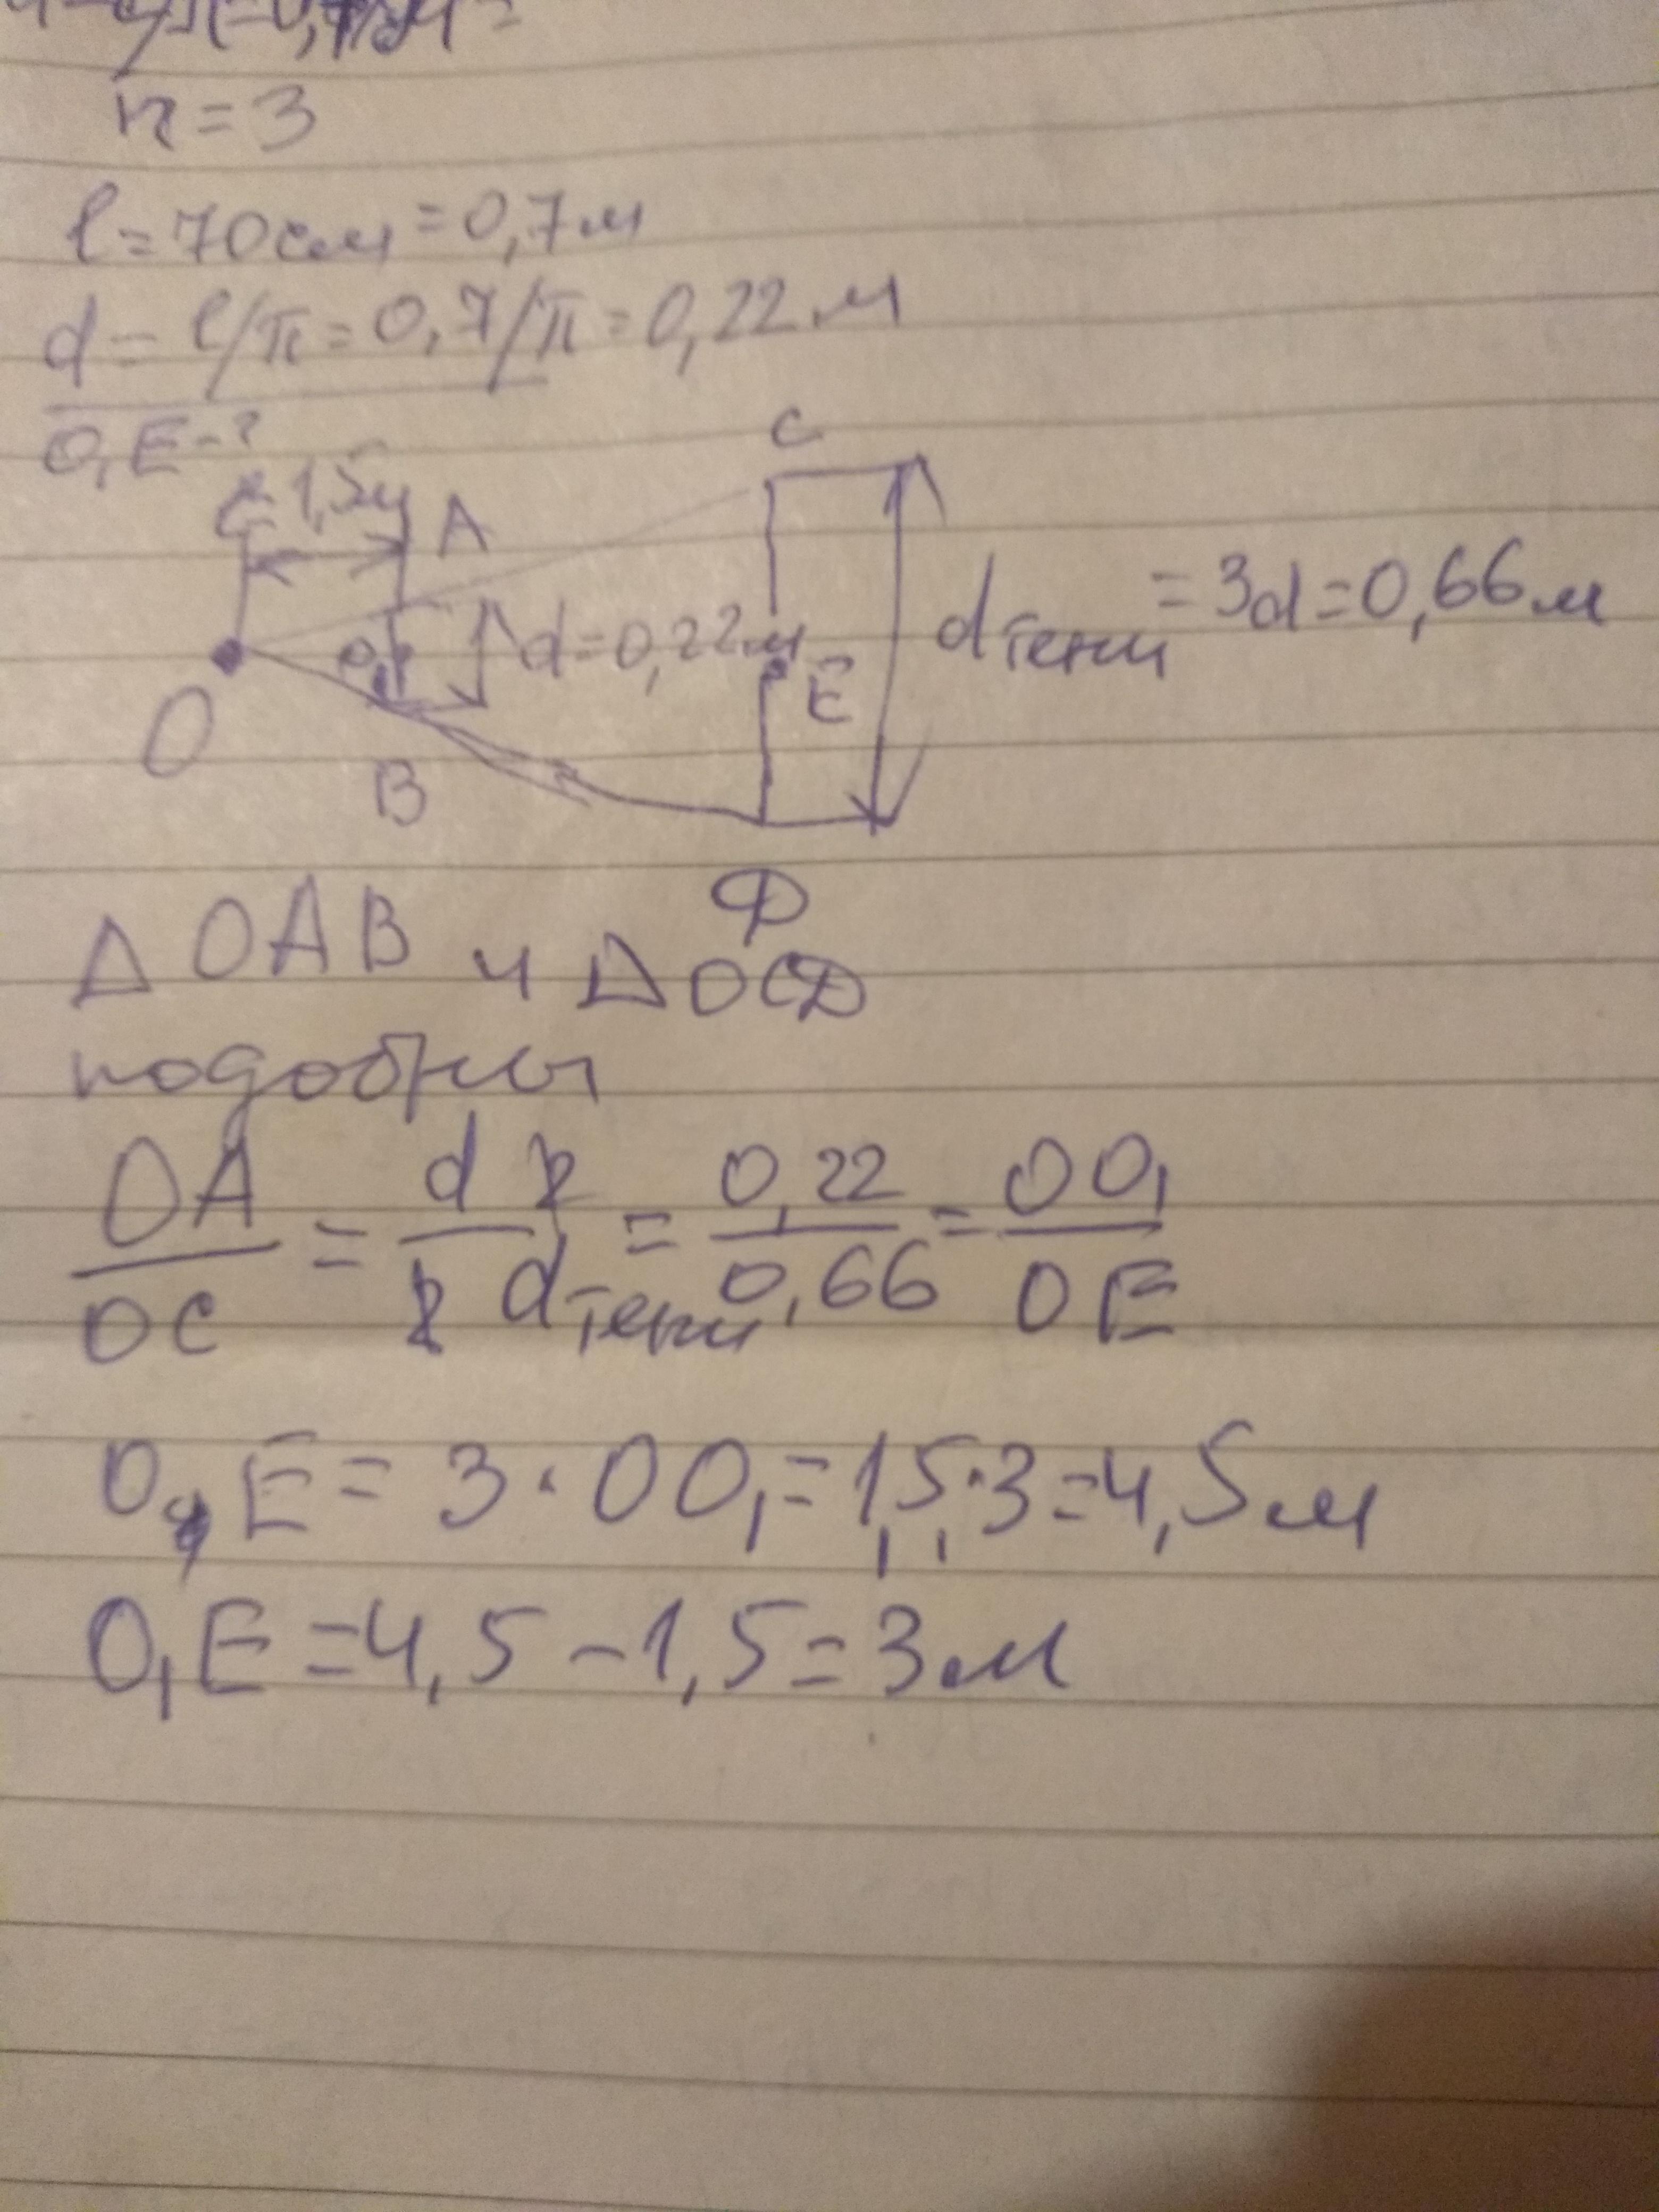 n=3
l=70см=0,7м
d=l/π=0,7/π=0,22м
O₁E-?
1,5м
A
C
d=0,22м
dтени=3d=0,66м
O
O₁
E
B
D
Δ OAB и Δ OCD
подобны
OA/OC = d/dтени = 0,22/0,66 = OO₁/OE
O E = 3·OO₁=1,5·3=4,5м
O₁E=4,5-1,5=3м